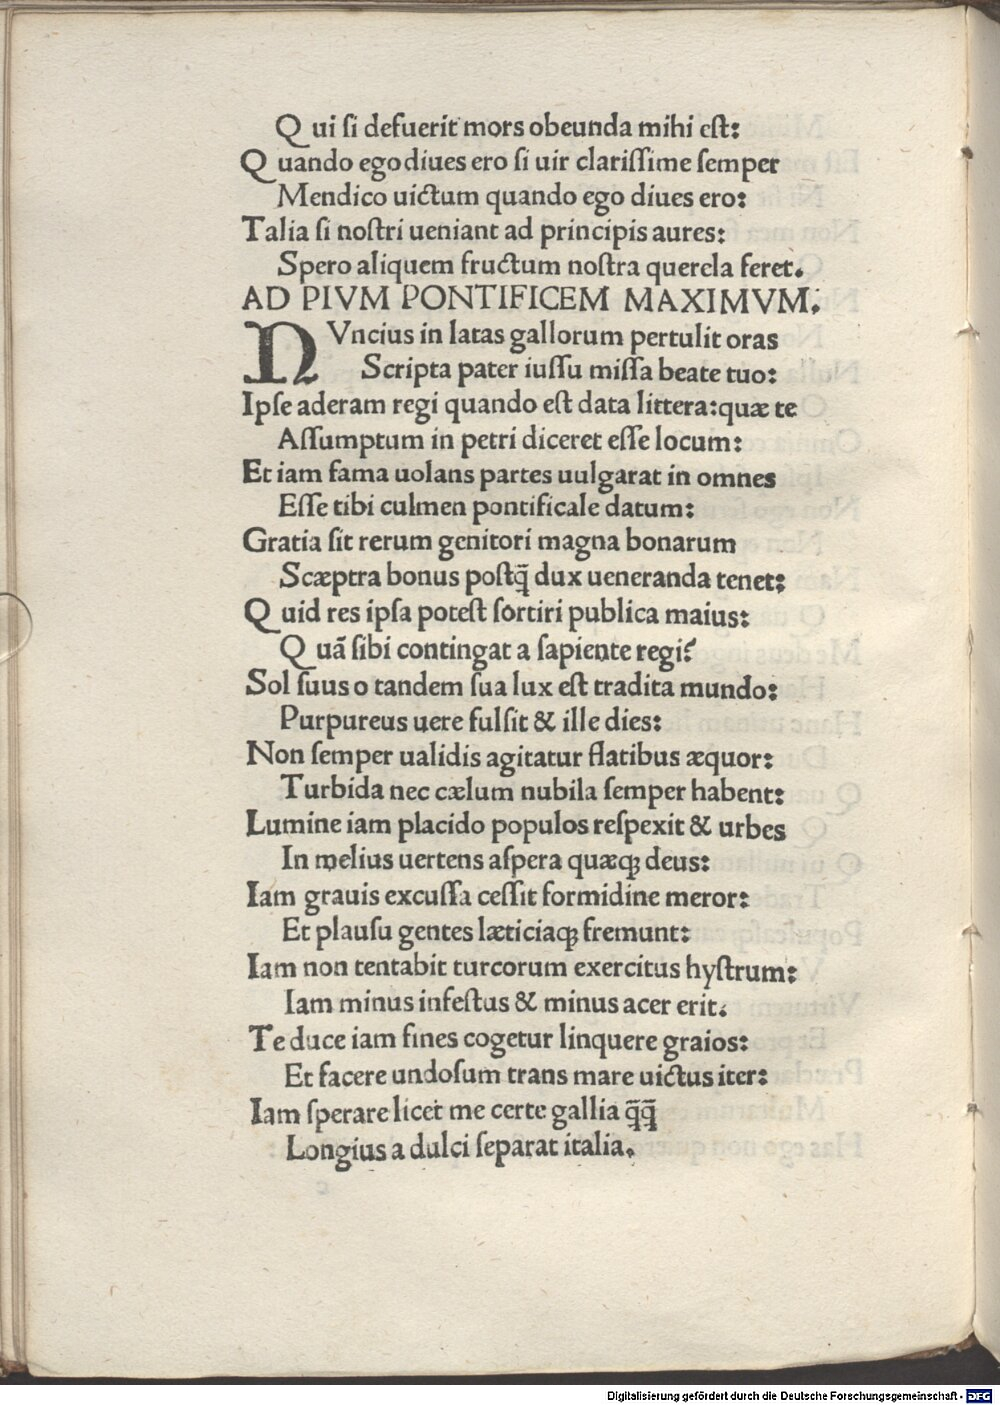 Q ui ſi defuerit mors obeunda mihi eſt:
Q uando ego diues ero ſi uir clariſſime ſemper
Mendico uictum quando ego diues ero:
Talia ſi noſtri ueniant ad principis aures:
Spero aliquem fructum noſtra querela feret.
AD PIVM PONTIFICEM MAXIMVM.
NVncius in latas gallorum pertulit oras
Scripta pater iuſſu miſſa beate tuo:
Ipſe aderam regi quando eſt data littera:quæ te
Aſſumptum in petri diceret eſſe locum:
Et iam fama uolans partes uulgarat in omnes
Eſſe tibi culmen pontificale datum:
Gratia ſit rerum genitori magna bonarum
Scæptra bonus poſtq̄ dux ueneranda tenet:
Q uid res ipſa poteſt ſortiri publica maius:
Q uã ſibi contingat a ſapiente regi?
Sol ſuus o tandem ſua lux eſt tradita mundo:
Purpureus uere fulſit & ille dies:
Non ſemper ualidis agitatur flatibus æquor:
Turbida nec cælum nubila ſemper habent:
Lumine iam placido populos reſpexit & urbes
In melius uertens aſpera quæqꝫ deus:
Iam grauis excuſſa ceſſit formidine meror:
Et plauſu gentes læticiaqꝫ fremunt:
Iam non tentabit turcorum exercitus hyſtrum:
Iam minus infeſtus & minus acer erit.
Te duce iam fines cogetur linquere graios:
Et facere undoſum trans mare uictus iter:
Iam ſperare licet me certe gallia q̄q̄
Longius a dulci ſeparat italia.
Digitalisierung gefördert durch die Deutsche Forschungsgemeinschaft - DFG